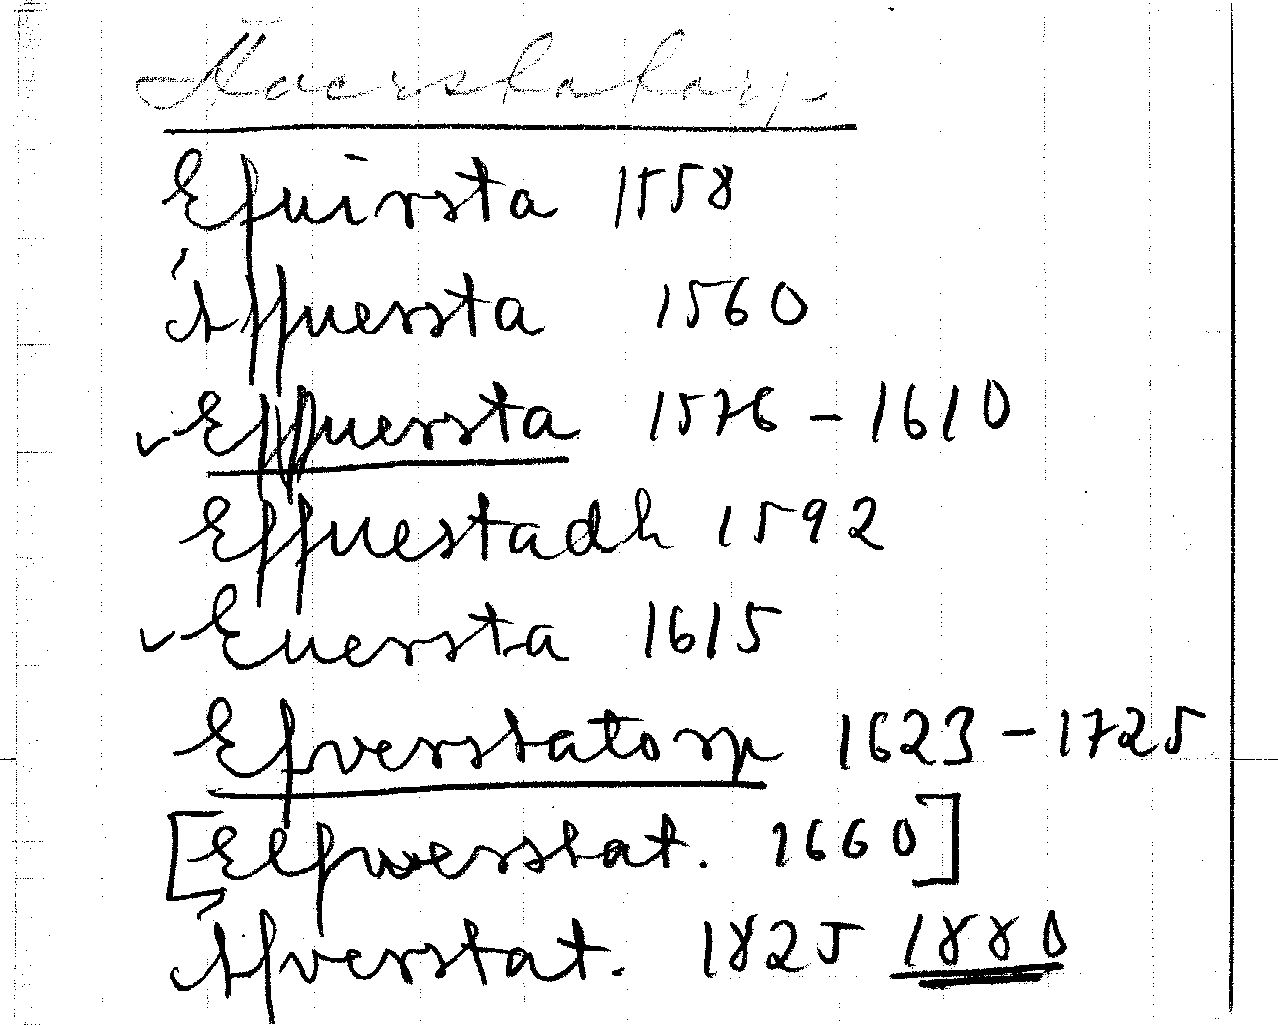 Efuirsta 1558
Äffuersta 1560
Effuersta 1576 - 1610
Effuestadh 1592
Euersta 1615
Efverstatorp 1623 - 1725
[Elfwerstat. 1660]
Äfverstat. 1825 1880